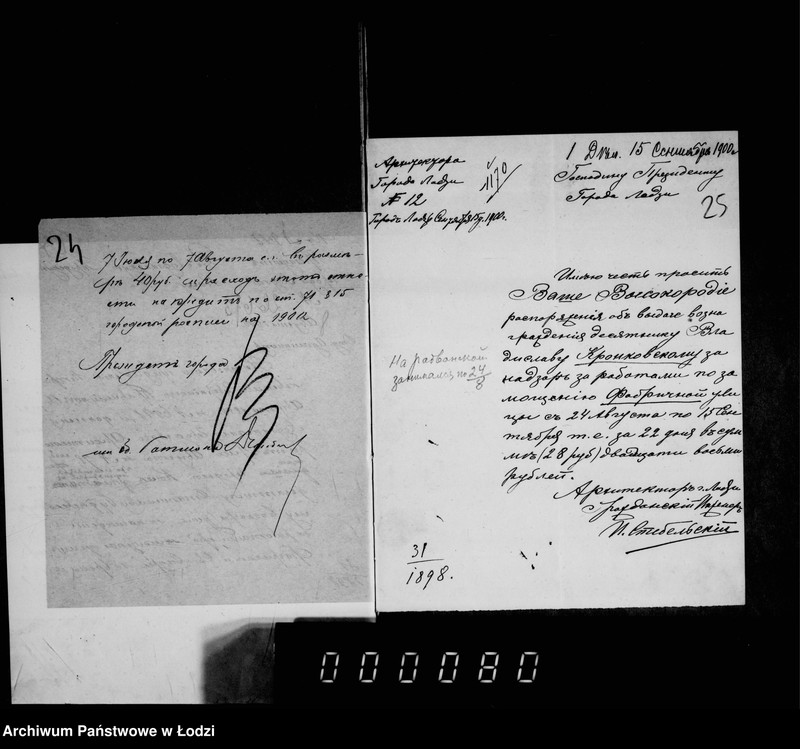 24
7 Июля по 7 Августа с.г. въ размѣ-
рѣ 40 руб. и расходъ этотъ отне-
сти на кредитъ по ст. 71 § 15
городской росписи на 1900
Президентъ города
Архитектора
Города Лодзи
№ 12
Городъ Лодзь
1900 г.
1170
1 Дѣл. 15 Сентября 1900 г.
Господину Президенту
Города Лодзи
25
Имѣю честь просить
Ваше Высокородіе
распоряженія объ выдачѣ возна
гражденія десятнику Вла
диславу Кронковскому за
надзоръ за работами по за
мощенію Фабричной ули
цы съ 24 Августа по 15 Сен
тября т.е. за 22 дня въ сум
мѣ (28 руб) двадцати восьми
рублей.
На
занимался по 24/8
Архитекторъ г. Лодзи
Гражданскій Инженеръ
П. Стебельскій
31
1898.
000080
Archiwum Państwowe w Łodzi